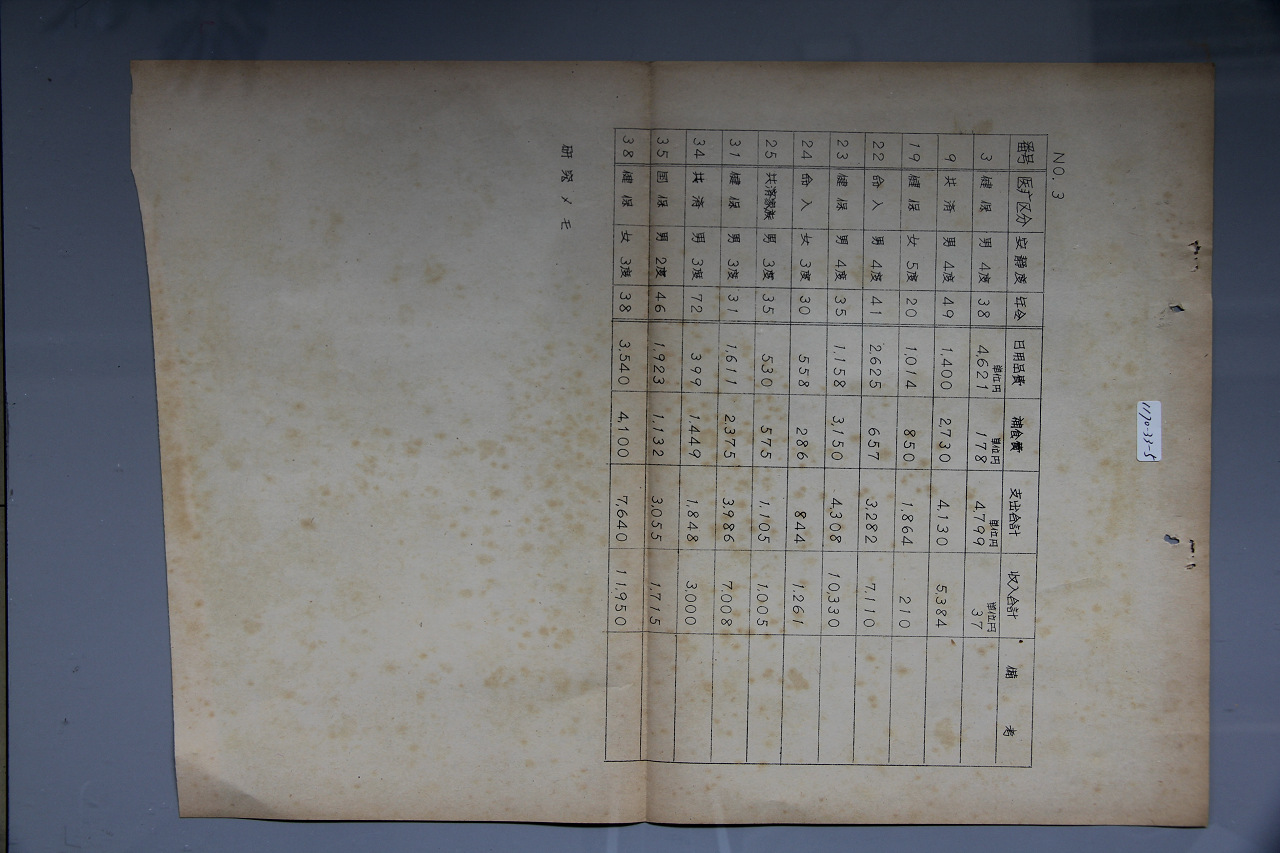 NO. 3
番号 医疒区分 安静度 年令 日用品費 補食費 支出合計 収入合計 備考
3 健保 男 4度 38 単位円 4,621 単位円 178 単位円 4,799 単位円 37
9 共済 男 4度 49 1,400 2,730 4,130 5,384
19 健保 女 5度 20 1,014 850 1,864 210
22 命入 男 4度 41 2,625 657 3,282 7,110
23 健保 男 4度 35 1,158 3,150 4,308 10,330
24 命入 女 3度 30 558 286 844 1,261
25 共済家族 男 3度 35 530 575 1,105 1,005
31 健保 男 3度 31 1,611 2,375 3,986 7,008
34 共済 男 3度 72 399 1,449 1,848 3,000
35 国保 男 2度 46 1,923 1,132 3,055 1,715
38 健保 女 3度 38 3,540 4,100 7,640 11,950
研究メモ
1170-33-5